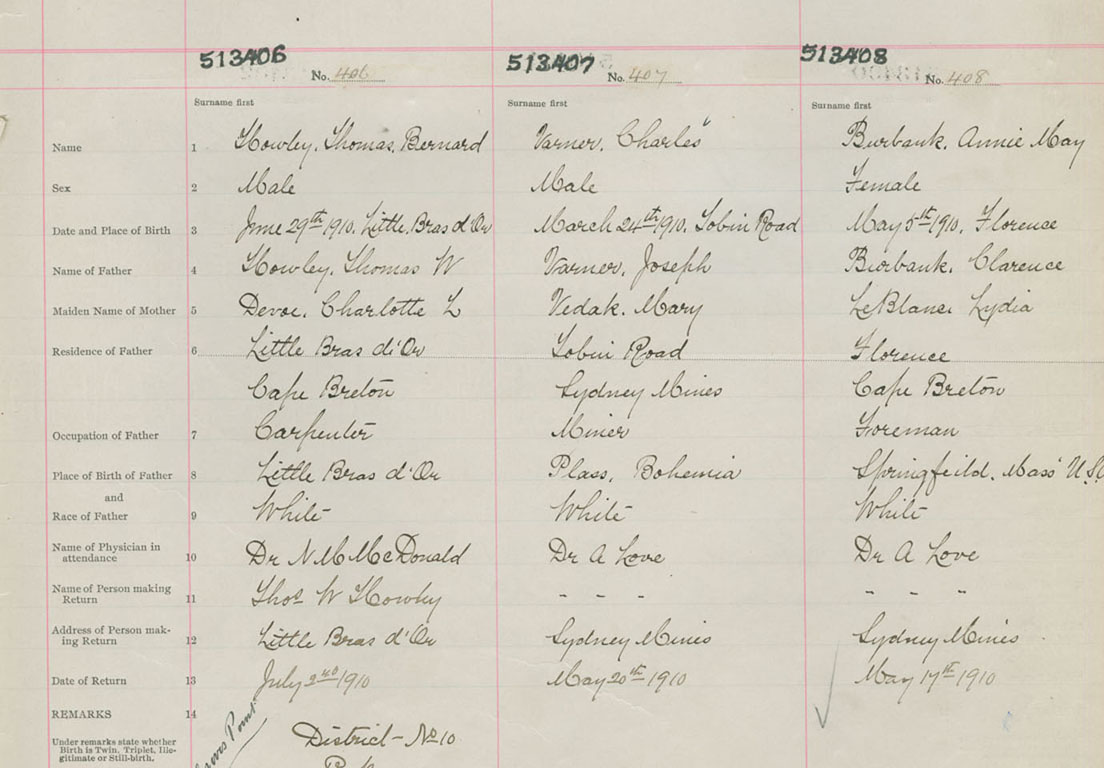 513406 513407 513408
No. 406 No. 407 No. 408
Surname first Surname first Surname first
Name 1 Howley, Thomas, Bernard Varner, Charles" Burbank, Annie May
Sex 2 Male Male Female
Date and Place of Birth 3 June 29th 1910, Little Bras d'Or March 24th 1910, Tobin Road May 5th 1910, Florence
Name of Father 4 Howley, Thomas W Varner, Joseph Burbank, Clarence
Maiden Name of Mother 5 Devoe, Charlotte L Vedak, Mary LeBlanc, Lydia
Residence of Father 6 Little Bras d'Or Tobin Road Florence
Cape Breton Sydney Mines Cape Breton
Occupation of Father 7 Carpenter Miner Foreman
Place of Birth of Father 8 Little Bras d'Or Plass, Bohemia Springfeild, Mass U.S.
and
Race of Father 9 White White White
Name of Physician in
attendance 10 Dr N M McDonald Dr A Love Dr A Love
Name of Person making
Return 11 Thos W Howley - - - - - -
Address of Person mak-
ing Return 12 Little Bras d'Or Sydney Mines Sydney Mines
Date of Return 13 July 2nd 1910 May 20th 1910 May 17th 1910
REMARKS 14
Under remarks state whether
Birth is Twin, Triplet, Ille-
gitimate or Still-birth.
Point
District - No 10